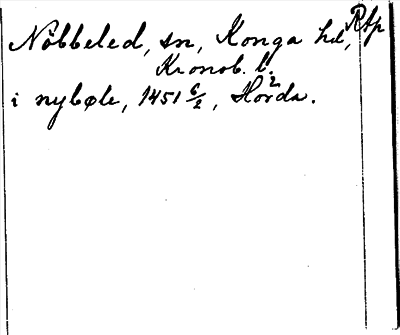 Nöbbeled, sn, Konga hd, Rtp
Kronob. l.
i nybøle, 1451 6/2, Horda.²